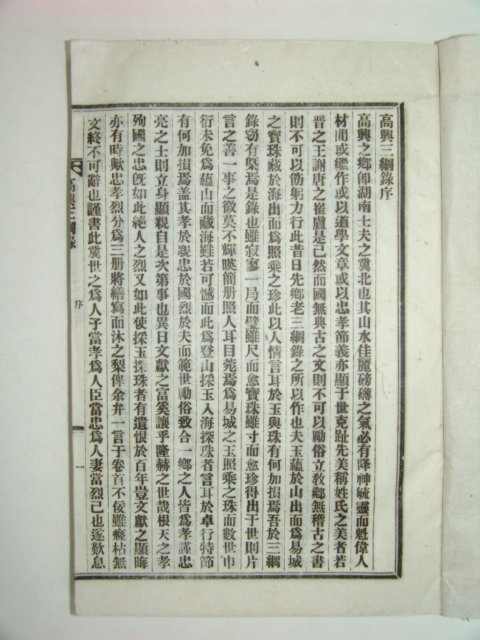 高興三綱錄序
高興之鄉卽湖南士夫之冀北也其山水佳麗磅礴之氣必有降神毓靈而魁偉人
材間或繼作或以道學文章或以忠孝節義亦顯于世克趾先美稱姓氏之美者若
晋之王謝唐之崔盧是已然而國無典古之文則不可以勵俗立教鄉無稽古之書
則不可以飭躬力行此昔日先鄉老三綱錄之所以作也夫玉蘊於山出而爲易城
之寶珠藏於海出而爲照乘之珍此以人情言耳於玉與珠有何加損焉吾於三綱
錄竊有槩焉是錄也雖寂寥一局而璧雖尺而愈寶珠雖寸而愈珍得出于世則片
言之善一事之微莫不輝暎簡册照人耳目菀焉爲易城之玉照乘之珠而數世巾
衍未免爲蘊山而藏海雖若可憾而此爲登山採玉入海探珠者言耳於卓行特節
有何加損焉盖其孝於親忠於國烈於夫而範世勵俗致合一鄉之人皆爲孝謹忠
亮之士則立身顯親自是次第事也異日文獻之富奚讓乎隆赫之世哉根天之孝
殉國之忠旣如此絕人之烈又如此使採玉探珠者有遺恨於百年豈文獻之顯晦
亦有時歟忠孝烈分爲三册將繕寫而沐之梨俾余弁一言于卷首不侫雖癃枯無
文終不可辭也謹書此冀世之爲人子當孝爲人臣當忠爲人妻當烈已也遂歎息
高興三綱錄
序
一